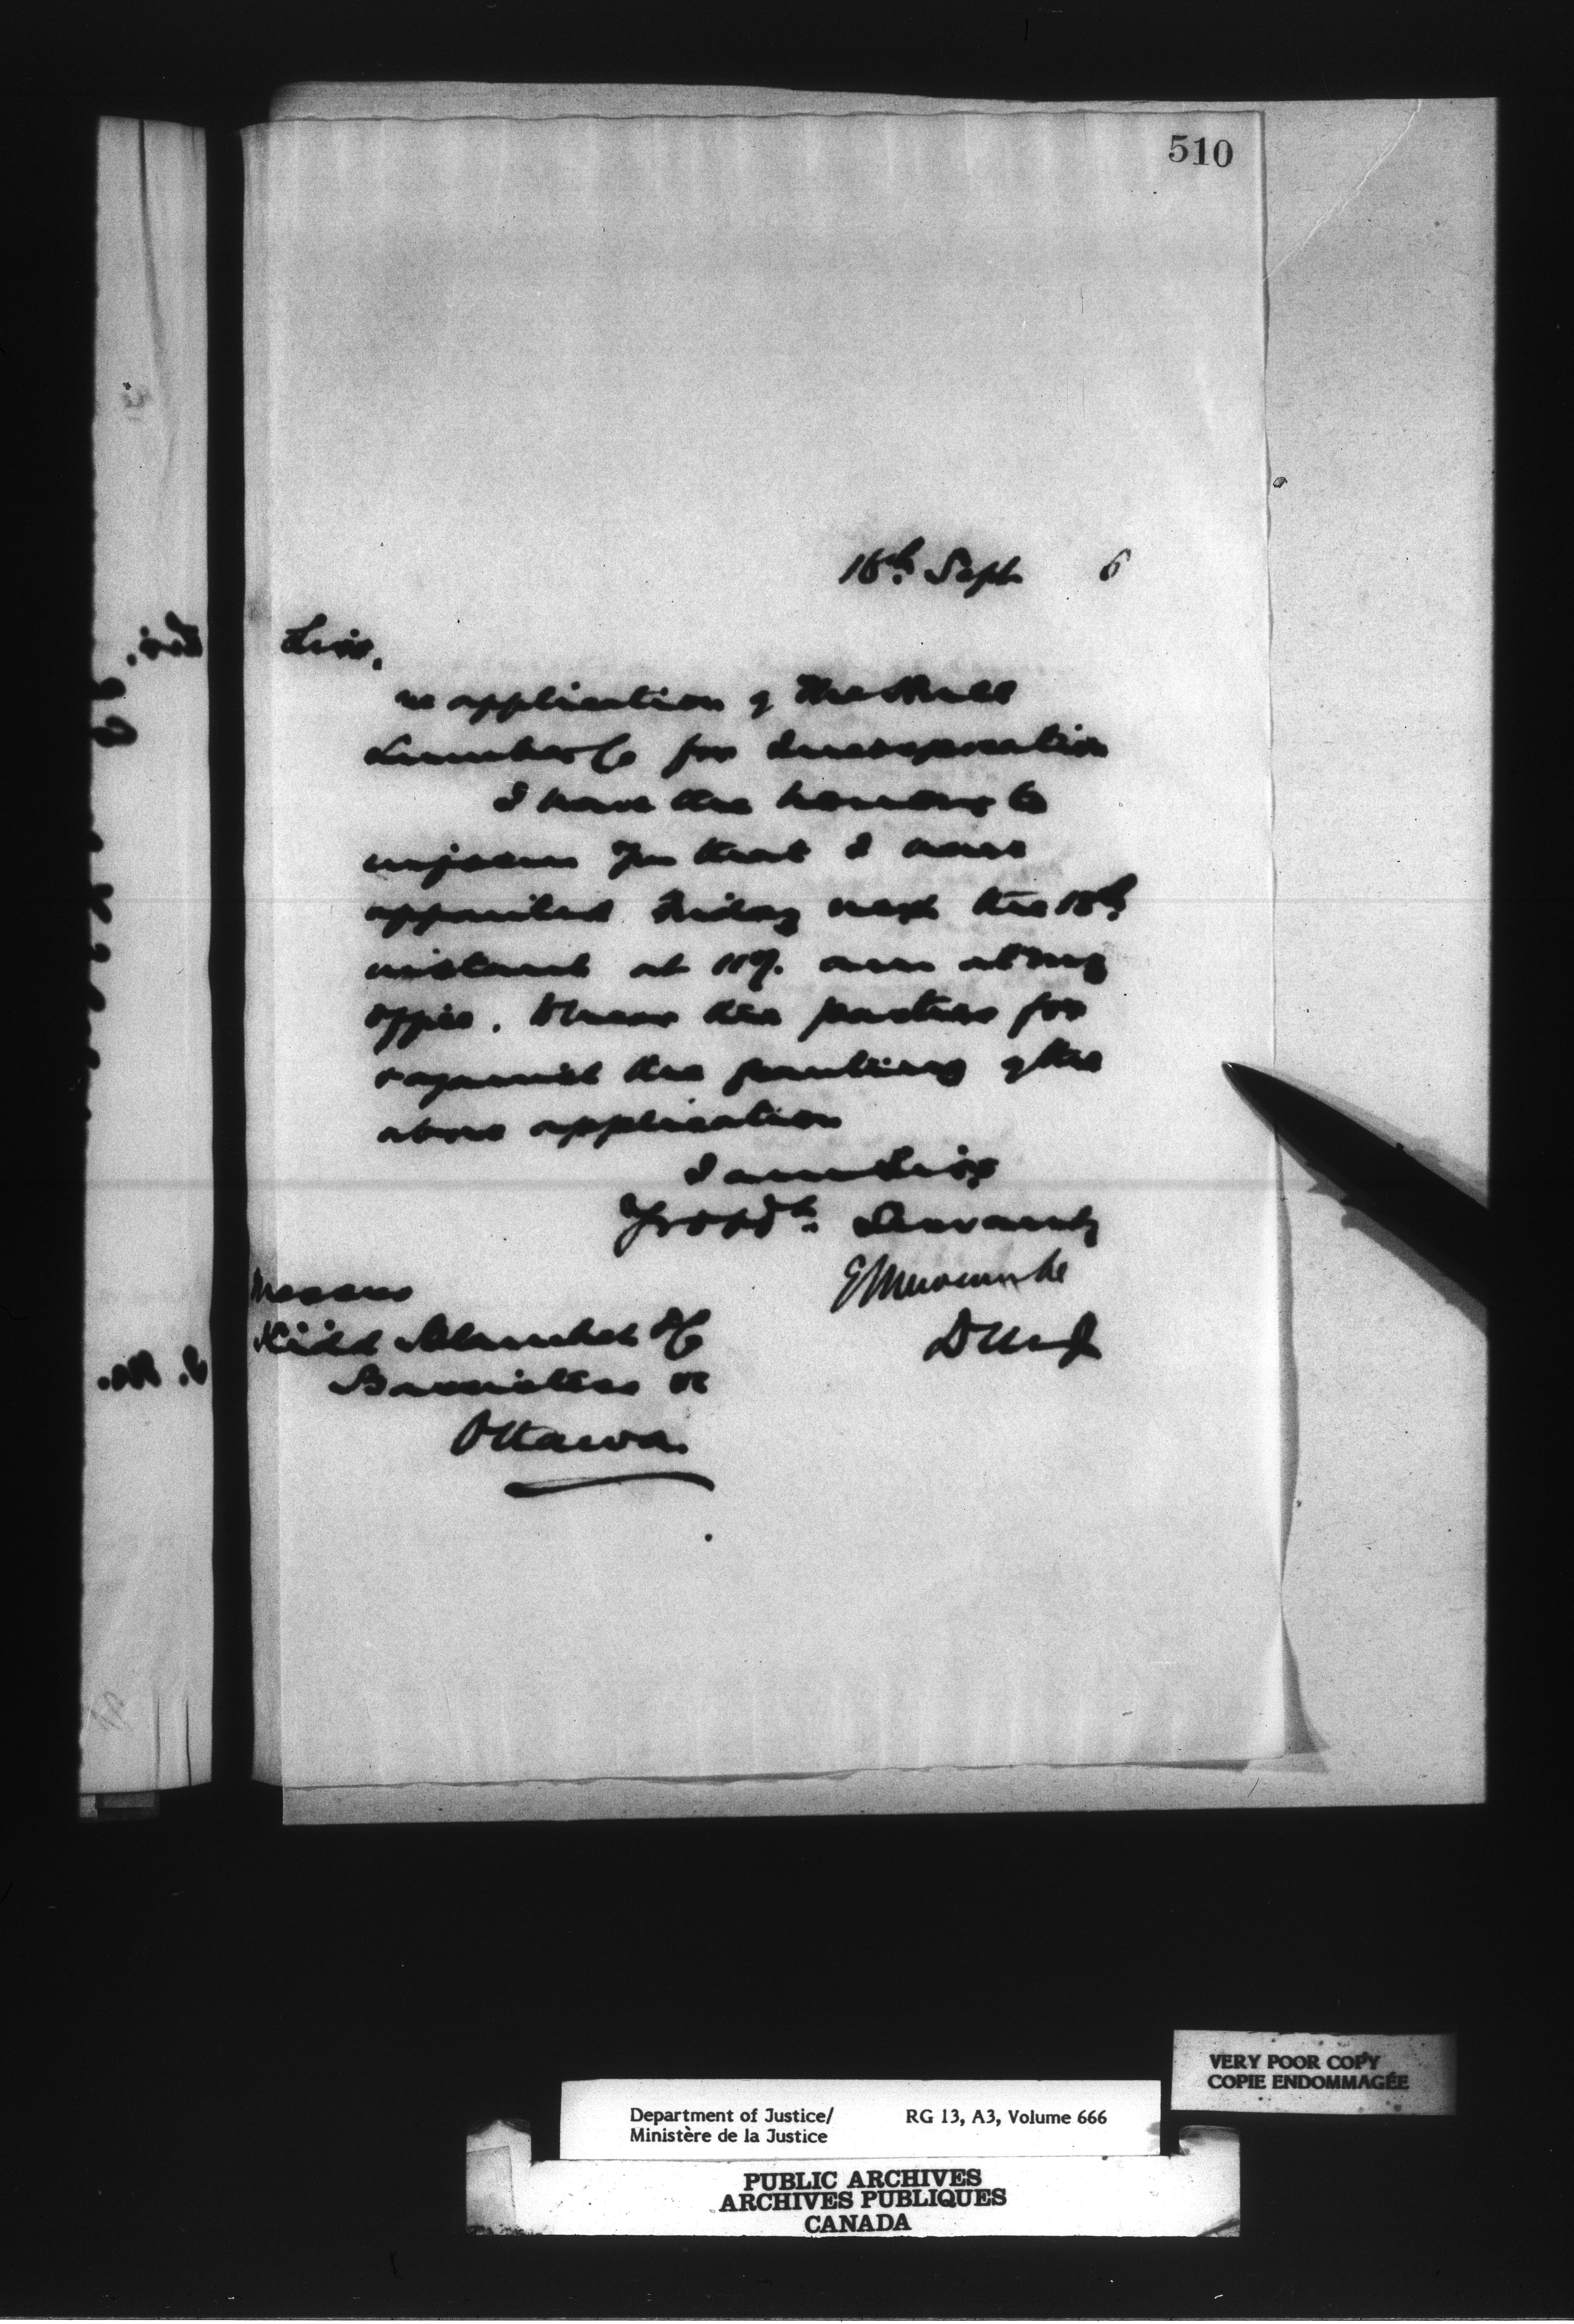 510
16th. Sept 6
Sirs,
re application of The Hull
Lumber Co for Incorporation
I have the honour to
inform you that I have
appointed Friday next the 18th.
instant at 11 am at my
office. to hear the parties for
& against the granting of the
above application
I am Sirs
Yr obdt. Servant
E L Newcombe
D M J
Messrs
Kidd & Co
Barristers &c
Ottawa.
VERY POOR COPY
COPIE ENDOMMAGÉE
Department of Justice/ RG 13, A3, Volume 666
Ministère de la Justice
PUBLIC ARCHIVES
ARCHIVES PUBLIQUES
CANADA